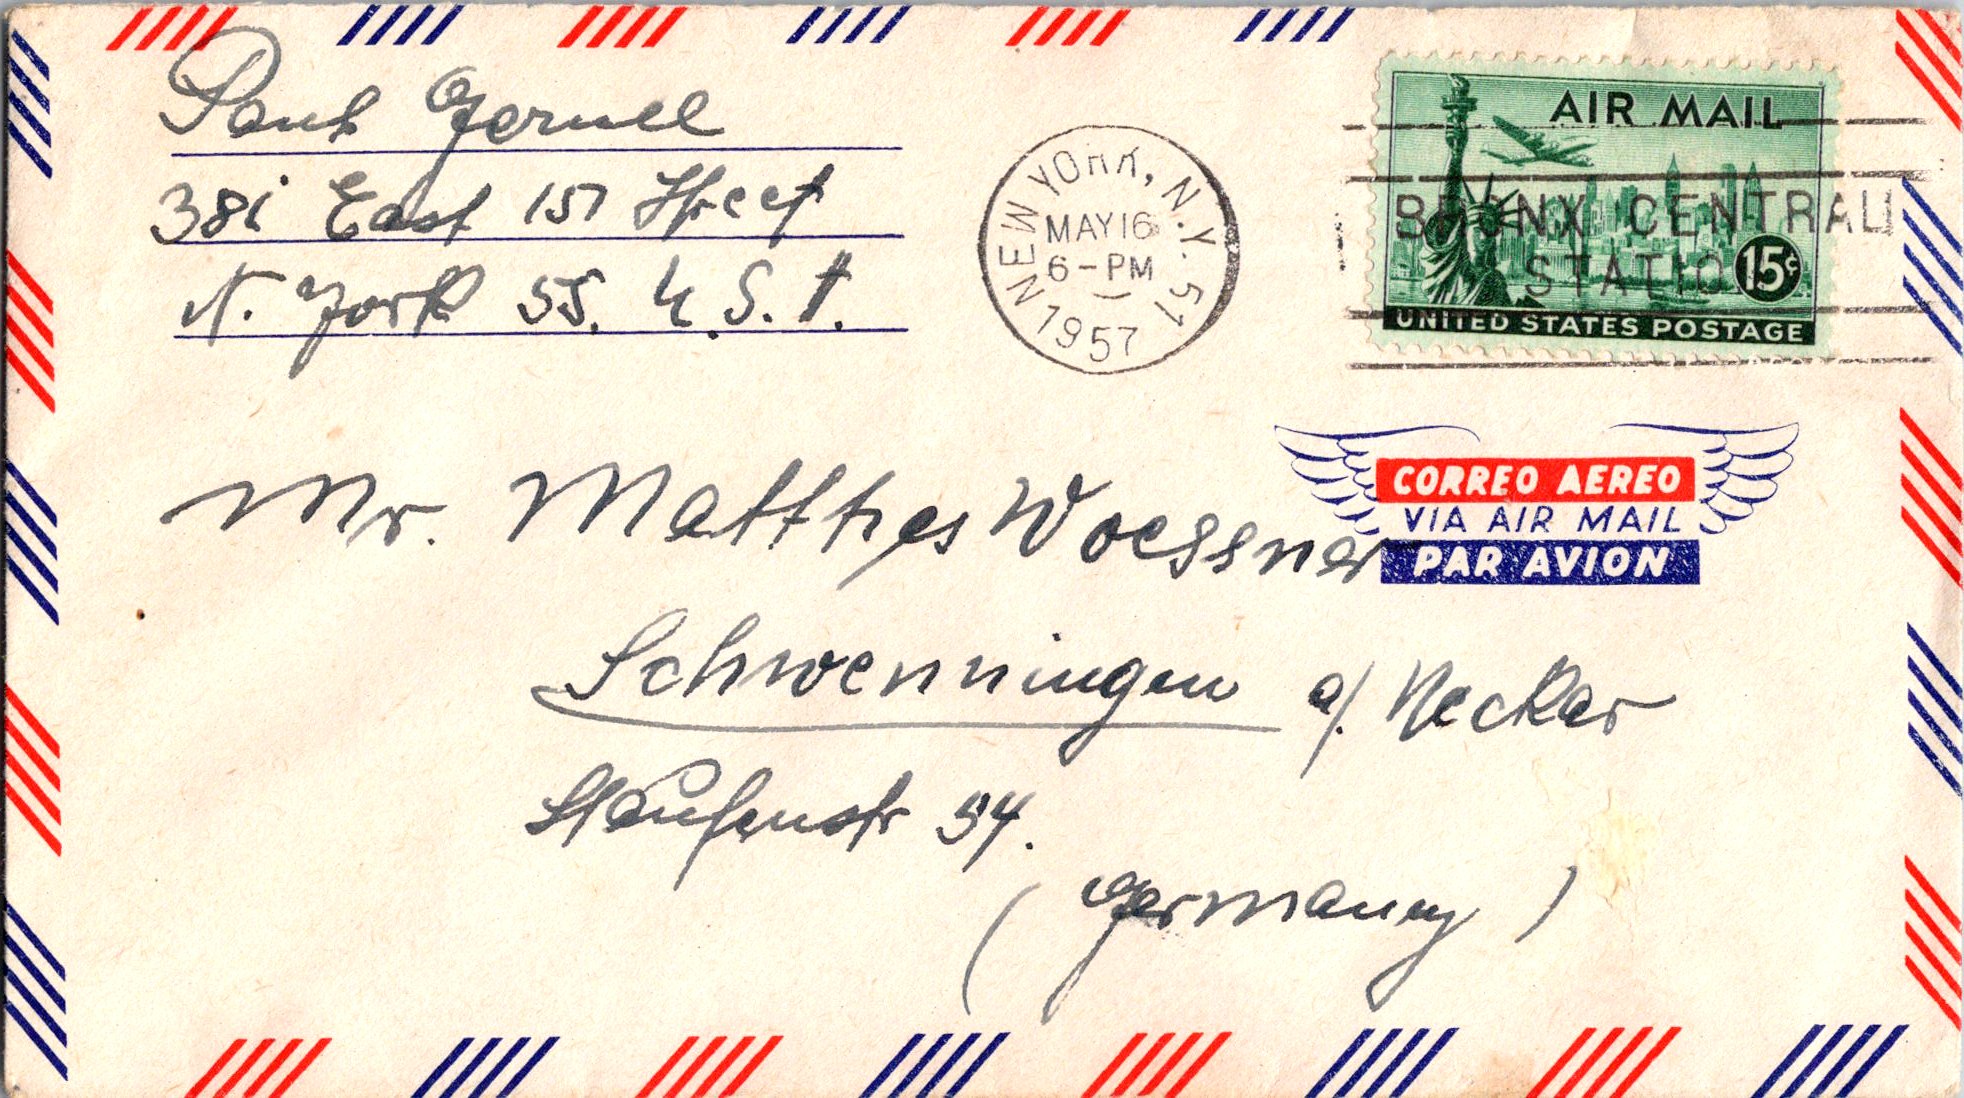 Paul Gernel
381 East 151 Street
N. York 55. U.S.A.
NEW YORK, N.Y. 51
MAY 16
6-PM
1957
AIR MAIL
BRONX CENTRAL
STATION
15c
UNITED STATES POSTAGE
CORREO AEREO
VIA AIR MAIL
PAR AVION
Mr. Matthes Woessner
Schwenningen a/. Necker
Staufenstr 54.
(Germany)